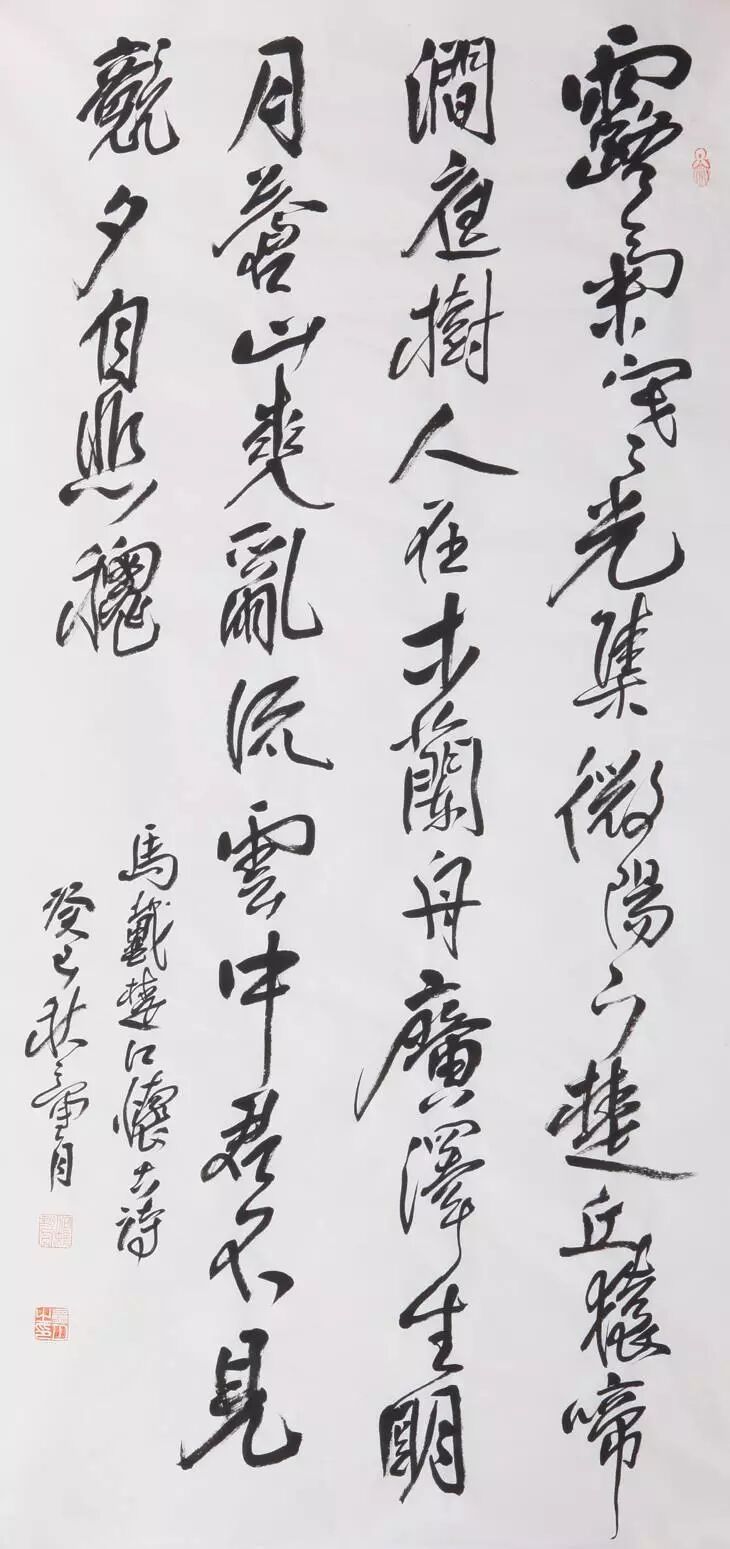 露氣寒光集微陽下楚丘猿啼
澗庭樹人在木蘭舟廣澤生明
月蒼山夾亂流雲中君不見
競夕自悲穐
馬戴楚江懷古詩
癸巳秋月